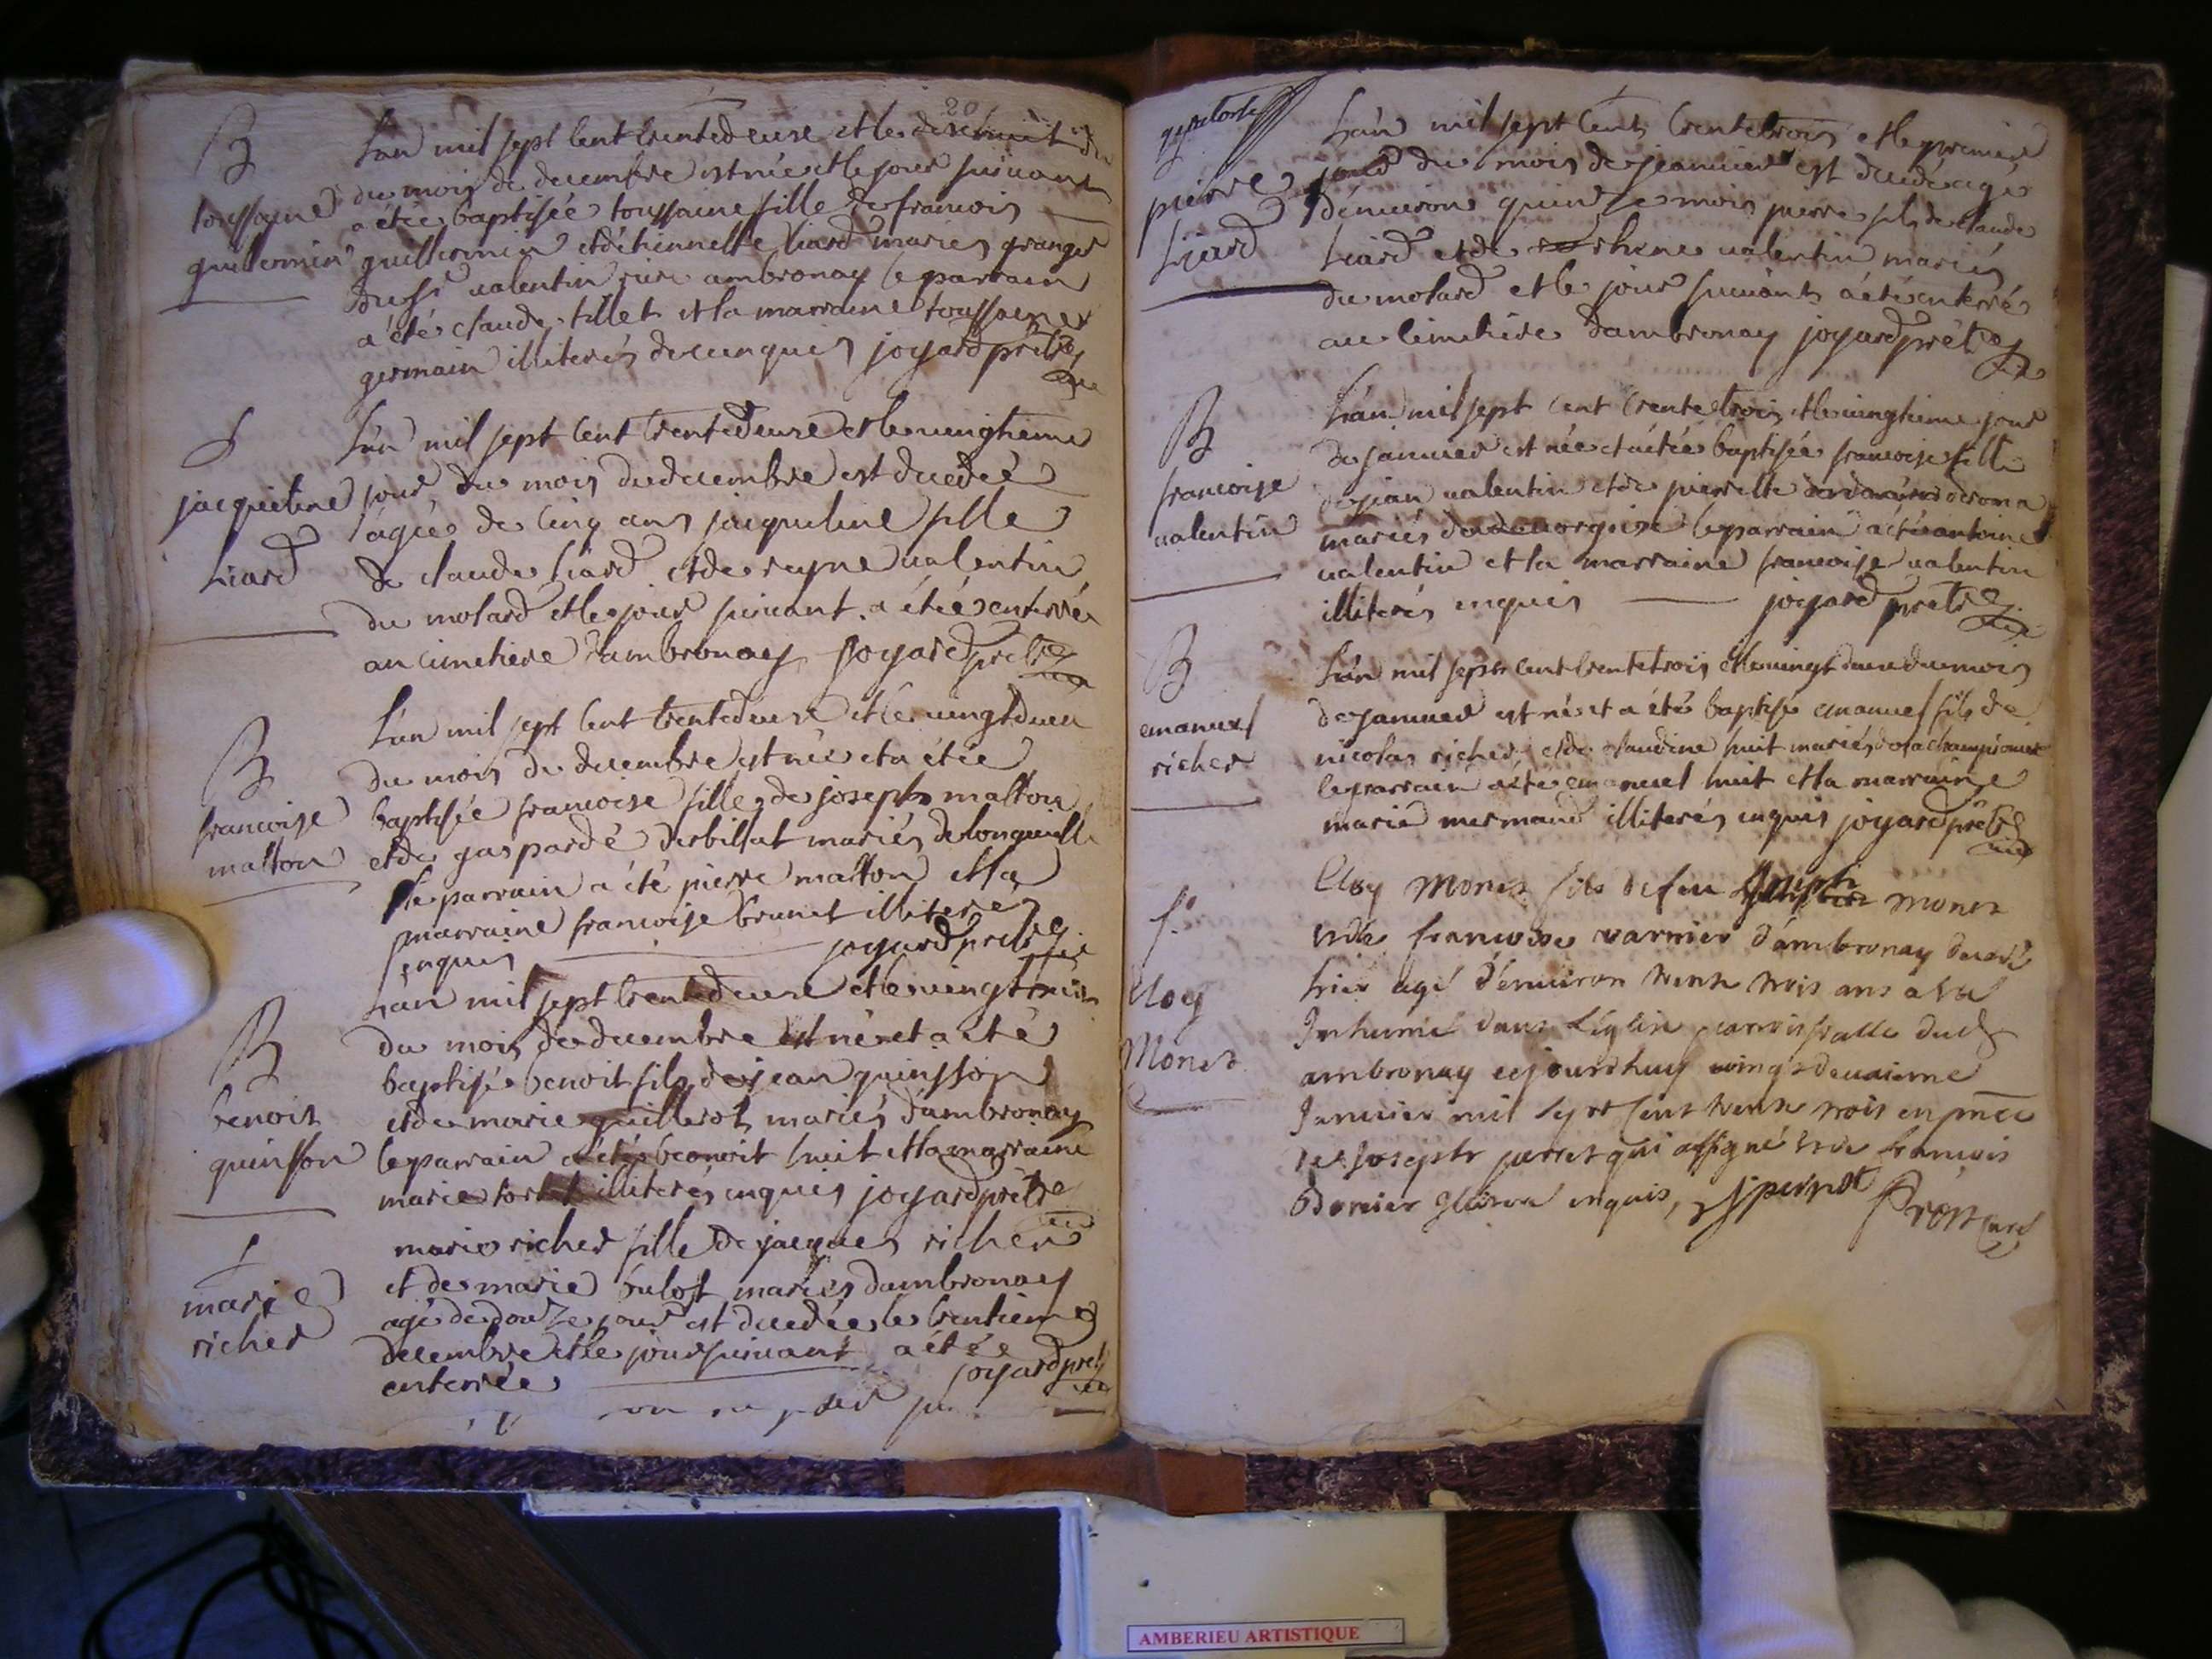 20
B
toussaine
guillermin
L'an mil sept cent trentedeuxe et le dixehuit
du mois de decembre est née et le jour suivant
a étée baptisée toussaine fille de francois
guillermin et d'étiennette liard mariés granger
du sr valentin rière ambronay le parrain
a été claude tillet et la marraine toussaine
germain illiterés de ce enquis joyard prêtre
S
jacqueline
Liard
L'an mil sept cent trentedeuxe et le vingtieme
jour du mois de decembre est decedée
agée de cinq ans jacqueline fille
de claude Liard et de reyne valentin
du molard et le jour suivant a étée enterrée
au cimetiere d'ambronay joyard prêtre
B
francoise
malton
L'an mil sept cent trentedeuxe et le vingtdeux
du mois de decembre est née et a étée
baptisée francoise fille de joseph malton
et de gasparde derbillat mariés de longeville
le parrain a été pierre malton et la
marraine francoise brunet illiteres
enquis joyard prêtre
B
benois
quinsson
L'an mil sept trentedeuxe et le vingttrois
du mois de decembre est né et a été
baptisé benoit fils de jean quinsson
et de marie guillerot mariés d'ambronay
le parrain a été benoit huit et la marraine
marie illiterés enquis joyard prêtre
S
marie
richer
marie richer fille de jacques richer
et de marie bulot mariés d'ambronay
agée de douze jour est decedée le trentieme
decembre et le jour suivant a étée
enterrée joyard pret
pierre
Liard
L'an mil sept cent trentetrois et le premier
jour du mois de jeanvier est decedé agé
d'environ quinze mois pierre fils de claude
Liard et de rhene valentin mariés
du molard et le jour suivant a été enterré
au cimetiere d'ambronay joyard prêtre
B
francoise
valentin
L'an mil sept cent trente trois et le vingtieme jour
de janvier est née et a étée baptisée francoise fille
de jean valentin et de pierrette
mariés le parrain a été antoine
valentin et la marraine francoise valentin
illiterés enquis joyard prêtre
B
emanuel
richer
L'an mil sept cent trentetrois et le vingt deux du mois
de janvier est né et a été baptisé emanuel fils de
nicolas richer et de claudine huit mariés de la championiere
le parrain a été emanuel huit et la marraine
marie mermand illiterés enquis joyard prêtre
S.
Eloy
Monet
Eloy Monet fils de feu Joseph Monet
et de francoise varnier d'ambronay decedé
hier agé d'environ trente trois ans a eté
Inhumé dans l'église parroissialle dud
ambronay cejourdhuy vingt deuxieme
Janvier mil sept cent trente trois en pnce
de Joseph perret qui a signé et de francois
Bornier illitere enquis, J perret curé